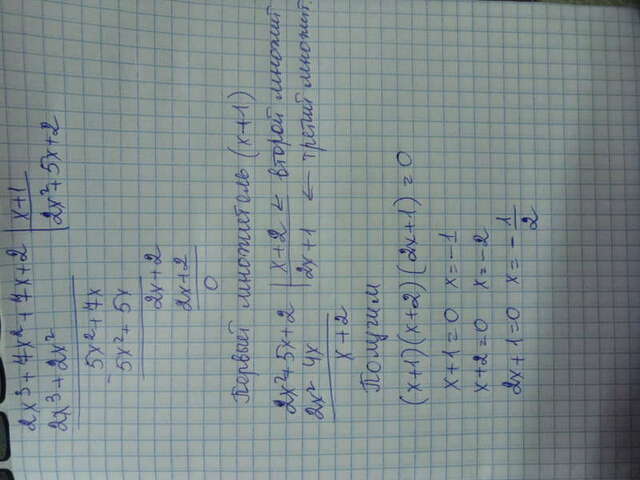 2x³ + 7x² + 7x + 2 | x+1
2x³ + 2x² | 2x² + 5x + 2
5x² + 7x
5x² + 5x
2x + 2
2x + 2
0
Первый множитель (x+1)
2x² + 5x + 2 | x + 2 ← второй множит
2x² 4x | 2x + 1 ← третий множит.
x + 2
Получим
(x+1)(x+2)(2x+1) = 0
x + 1 = 0 x = -1
x + 2 = 0 x = -2
2x + 1 = 0 x = - 1/2